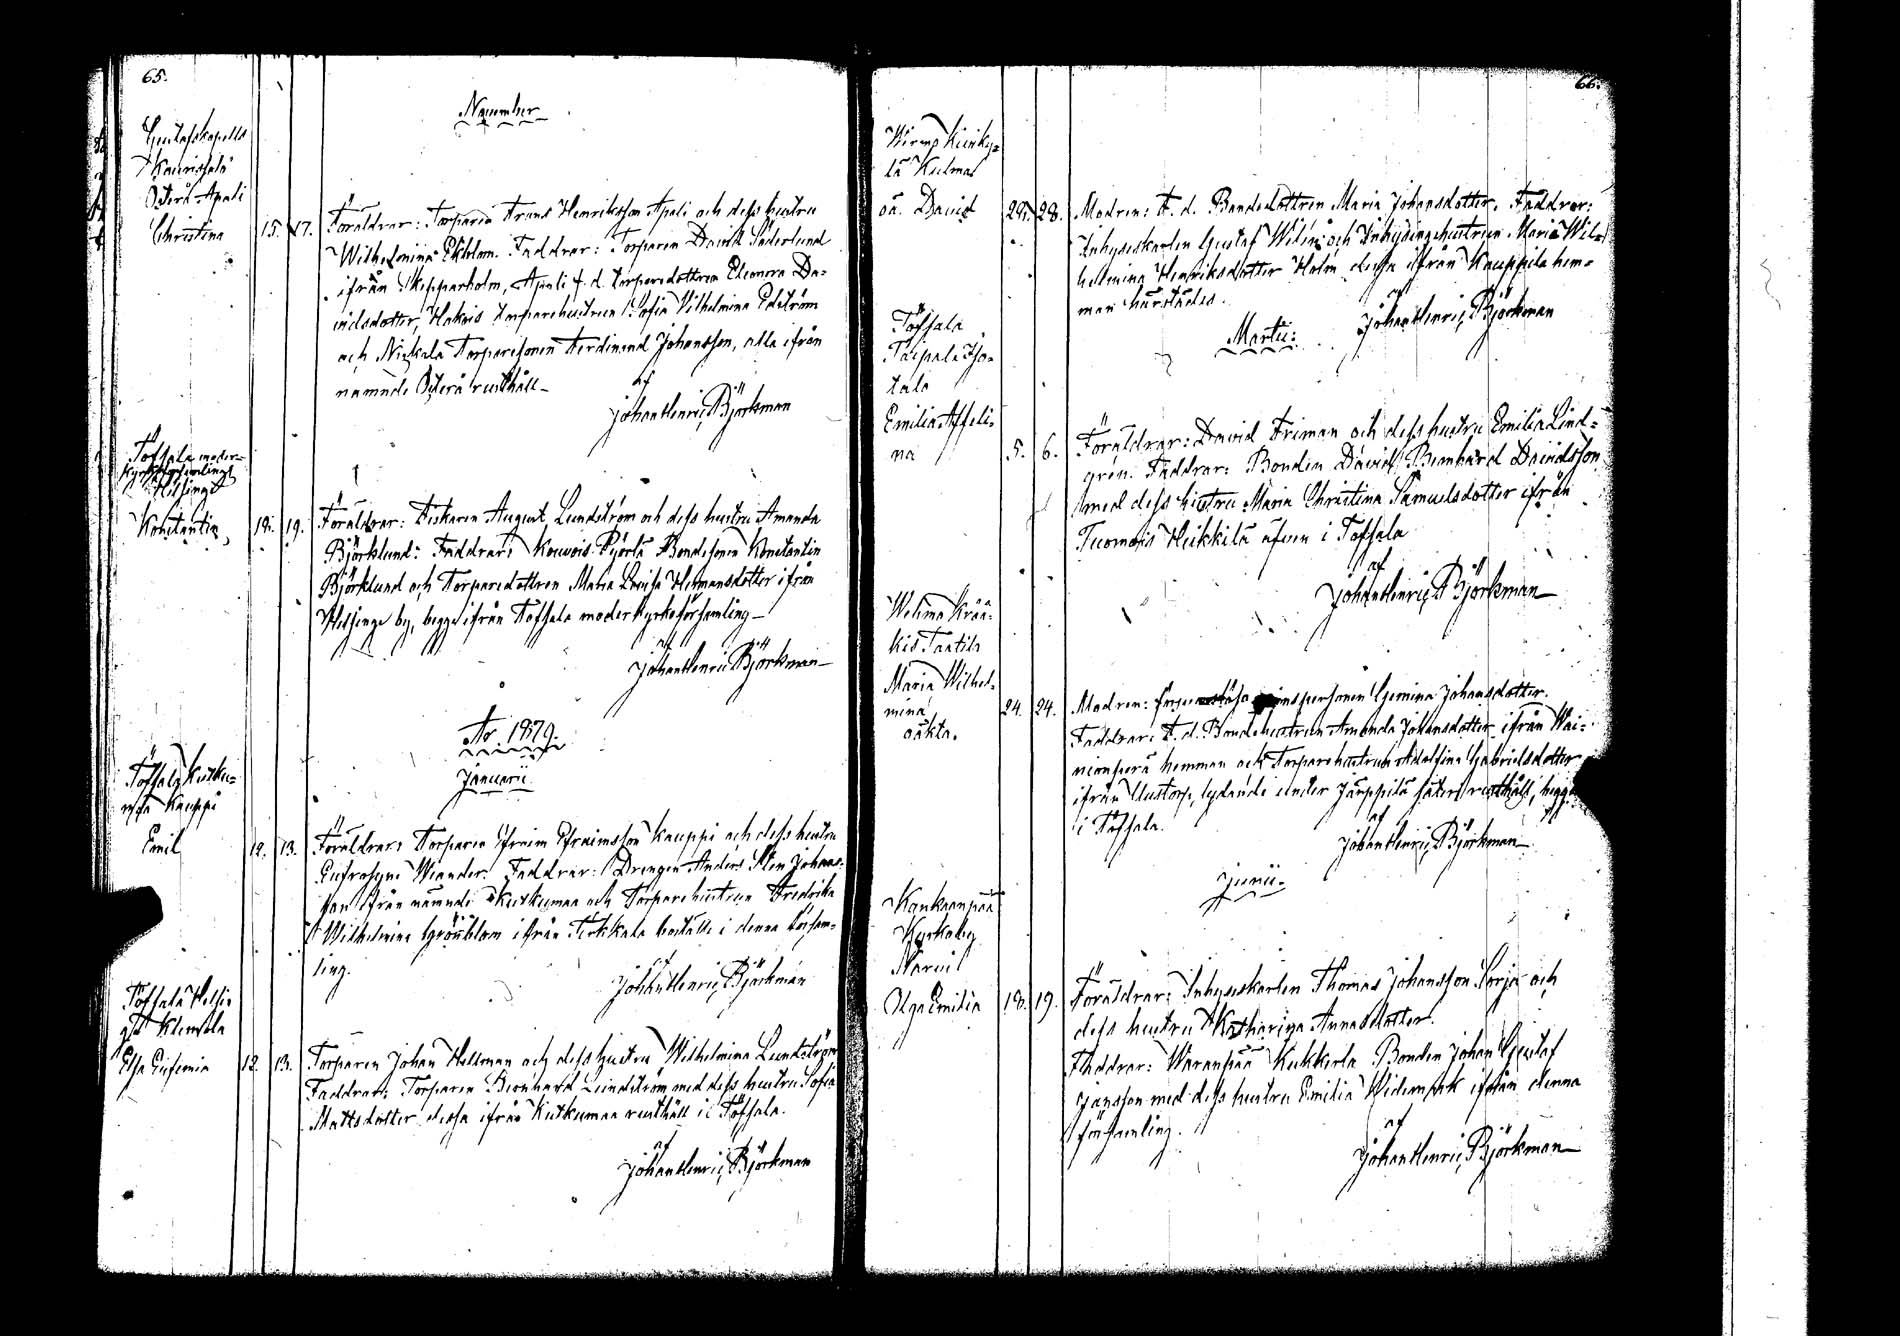 65.
November
Gustafskapells
Kaurissalo
Österå Apali
Christina 15. 17. Föräldrar: Torparen Frans Henriksson Apali och dess hustru
Wilhelmina Ekblom. Faddrar: Torparen David Söderlund
ifrån Skepparholm, Apali f.d. torparedottren Eleonora Da-
vidsdotter, Hakois torparehustrun Sofia Vilhelmina Edström
och Nickala Torparesonen Ferdinand Johansson, alla ifrån
nämnde Österå rusthåll -
af
Johan Henric Björkman
Töfsala moder-
kyrkoförsamlings
Helsinge
Konstantin, 18. 19. Föräldrar: Fiskaren August Lundström och dess hustru Amanda
Björklund: Faddrar: Kouvois Pjörlä Bondesonen Konstantin
Björklund och Torparedottren Maria Lovisa Hermansdotter ifrån
Helsinge by, begge ifrån Töfsala moderkyrkoförsamling -
af
Johan Henric Björkman
År 1879.
Januarii
Töfsala Kutku-
maa Kauppi
Emil 12. 13. Föräldrar: Torparen Efraim Efraimsson Kauppi och dess hustru
Eufrosyne Wiander. Faddrar: Drengen Anders Sten Johans-
son ifrån nämnde Kutkumaa och Torparehustrun Fredrika
Wilhelmina Grönblom ifrån Tirkkala boställe i denna försam-
ling.
af
Johan Henric Björkman
Töfsala Helsin-
ge Klemola
Elsa Eufemia 12. 13. Torparen Johan Hellman och dess hustru Wilhelmina Lundström
Faddrar: Torparen Bernhard Lindström med dess hustru Sofia
Mattsdotter dessa ifrån Kutkumaa rusthåll i Töfsala.
af
Johan Henric Björkman
66.
Wirmo Kunky-
lä Kulma
oä. David 28. 28. Modren: F. d. Bondedottren Maria Johansdotter. Faddrar:
Inhyseskarlen Gustaf Wilén och Inhysingehustrun Maria Wil-
helmina Henriksdotter Holm dessa ifrån Kauppila hem-
man härstädes.
af
Johan Henric Björkman
Martii:
Töfsala
Taipale Iso-
talo
Emilia Asseli-
na 5. 6. Föräldrar: David Friman och dess hustru Emilia Lind-
gren. Faddrar: Bonden David Bernhard Davidsson
med dess hustru Maria Christina Samuelsdotter ifrån
Tuomois Heikkilä äfven i Töfsala
af
Johan Henric Björkman
Wehmo Krää-
kis Tantila
Maria Wilhel-
mina 24. 24. Modren: Gemina Johansdotter.
oäkta. Faddrar: F. d. Bondehustrun Amanda Johansdotter ifrån Wai-
nionperä hemman och Torparehustrun Adolfina Gabrielsdotter
ifrån Uustorp, lydande under Järppilä säteri rusthåll, begge
i Töfsala.
af
Johan Henric Björkman
Junii.
Kankaanpää
Kyrkoby
Olga Emilia 18. 19. Föräldrar: Inhyseskarlen Thomas Johansson Sorja och
dess hustru Katharina Annasdotter.
Faddrar: Waranpää Kukkerla Bonden Johan Gustaf
Jansson med dess hustru Emilia Widemark ifrån denna
församling.
af
Johan Henric Björkman